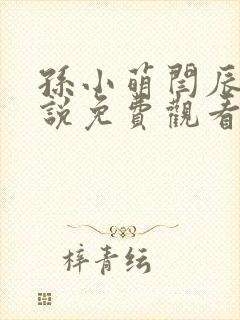 孫小萌閆辰
說免費觀看
梓青纭